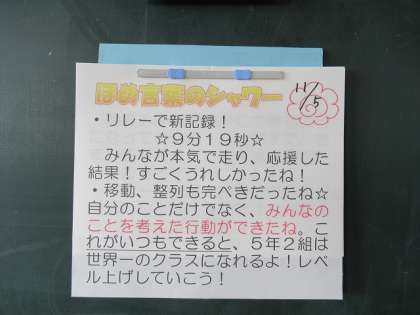 ほめ言葉のシャワー
11/5
・リレーで新記録！
☆９分１９秒☆
みんなが本気で走り、応援した
結果！すごくうれしかったね！
・移動、整列も完ぺきだったね☆
自分のことだけでなく、みんなの
ことを考えた行動ができたね。こ
れがいつもできると、５年２組は
世界一のクラスになれるよ！レベ
ル上げしていこう！